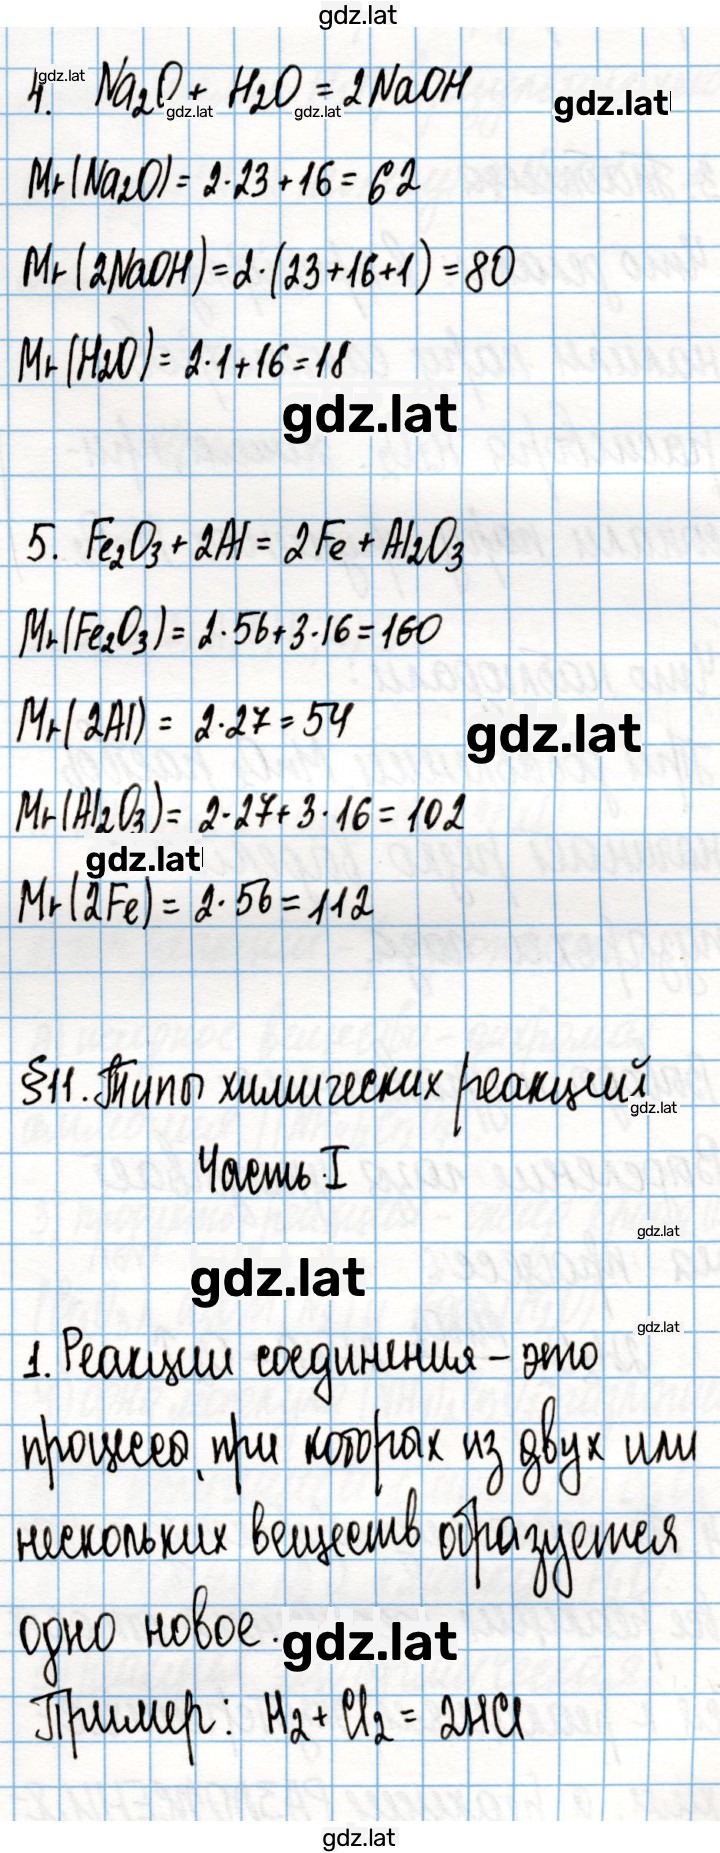 gdz.lat
4. Na2O + H2O = 2NaOH
gdz.lat
gdz.lat
gdz.lat
gdz.lat
Mr(Na2O) = 2·23+16 = 62
Mr(2NaOH) = 2·(23+16+1) = 80
Mr(H2O) = 2·1+16 = 18
gdz.lat
5. Fe2O3 + 2Al = 2Fe + Al2O3
Mr(Fe2O3) = 2·56+3·16 = 160
Mr(2Al) = 2·27 = 54
gdz.lat
Mr(Al2O3) = 2·27+3·16 = 102
gdz.lat
Mr(2Fe) = 2·56 = 112
§11. Типы химических реакций
gdz.lat
Часть I
gdz.lat
gdz.lat
gdz.lat
1. Реакции соединения – это
процессы, при которых из двух или
нескольких веществ образуется
одно новое.
gdz.lat
Пример: H2 + Cl2 = 2HCl
gdz.lat